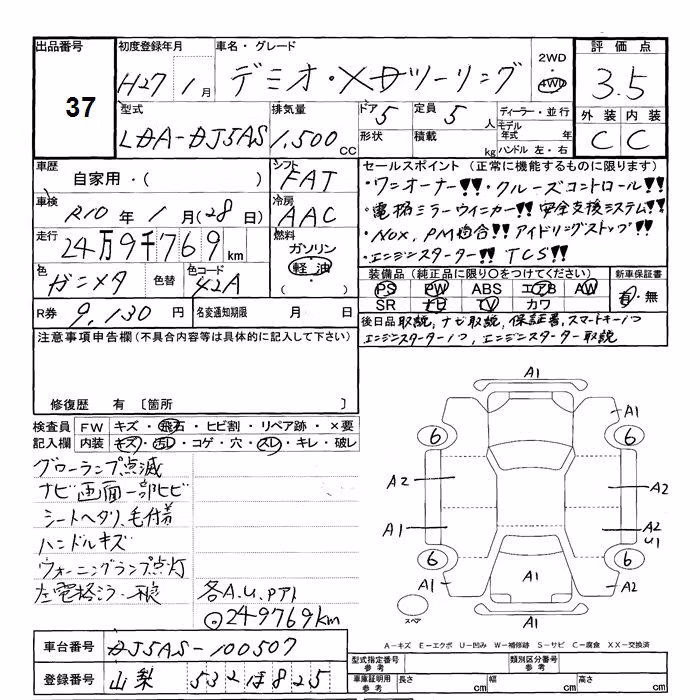 出品番号
37
初度登録年月
H27 1月
車名・グレード
デミオ・XDツーリング
2WD
・
4WD
評価点
3.5
型式
LDA-DJ5AS
排気量
1,500 cc
ドア 5
定員 5 人
形状
積載 kg
ディーラー・並行
モデル年式 年
ハンドル 左・右
外装 内装
C C
車歴
自家用・( )
シフト
FAT
車検
R10年1月(28日)
冷房
AAC
走行
24万9千769km
燃料
ガソリン
軽油
( )
色
ガンメタ
色替
色コード
42A
R券 9,130円
名変通知期限 月 日
セールスポイント(正常に機能するものに限ります)
・ワンオーナー!!・クルーズコントロール!!
・電格ミラーウインカー!! 安全支援システム!!
・NOX、PM適合!! アイドリングストップ!!
・エンジンスターター!! TCS!!
装備品(純正品に限り○をつけてください)
PS PW ABS エアB AW
SR ナビ TV カワ
新車保証書
有・無
後日品 取説、ナビ取説、保証書、スマートキー1つ
エンジンスターター1つ、エンジンスターター取説
注意事項申告欄(不具合内容等は具体的に記入して下さい)
修復歴 有〔箇所 〕
検査員記入欄
FW キズ・飛石・ヒビ割・リペア跡・×要
内装 キズ・汚レ・コゲ・穴・スレ・キレ・破レ
グローランプ点滅
ナビ画面一部ヒビ
シートヘタリ、毛付着
ハンドルキズ
ウォーニングランプ点灯
左電格ミラー
各A.U.Pアリ
249769km
A1
A1
6 6
A2 A2
A1 A2
U1
6 6
A1 A1 A2
スペア
A-キズ E-エクボ U-凹み W-補修跡 S-サビ C-腐食 XX-交換済
車台番号
DJ5AS-100507
登録番号
山梨 532ほ825
型式指定番号
参考
類別区分番号
参考
車庫証明用
参考
長さ cm
幅 cm
高さ cm